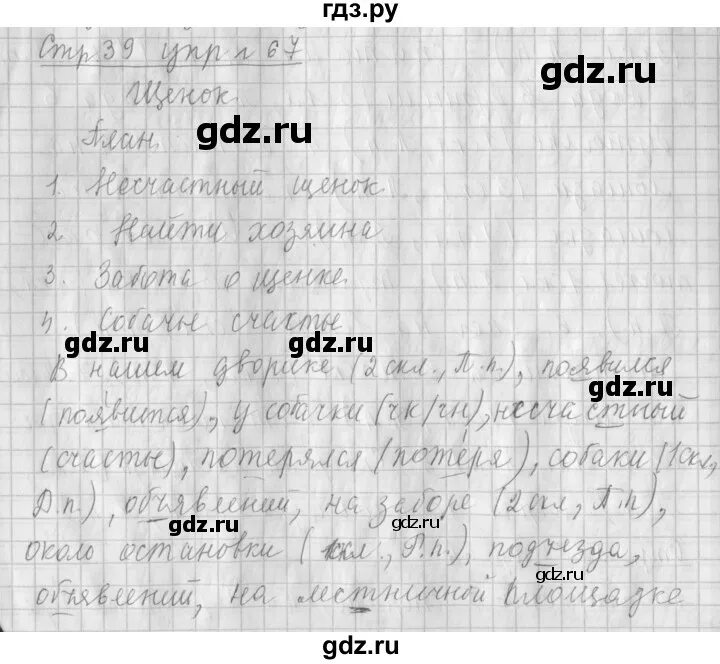 гдз.ру
Стр 39 упр № 67
gdz.ru
Щенок.
gdz.ru
План.
1. Несчастный щенок.
2. Найти хозяина
3. Забота о щенке.
4. Собачье счастье
gdz.ru gdz.ru
В нашем дворике (2 скл., П.п.), появился
gdz.ru
(появится), у собачки (чк/чн), несчастный
(счастье), потерялся (потеря), собаки (1 скл,
Д.п.), объявлений, на заборе (2 скл, П.п),
gdz.ru gdz.ru
около остановки (1 скл., Р.п.), подъезда,
gdz.ru
объявлений, на лестничной площадке
gdz.ru gdz.ru
gdz.ru